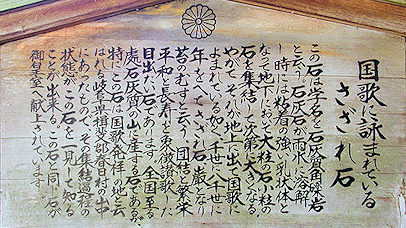 国歌に詠まれている
さざれ石
この石は学名を石灰質角礫岩
と云う。石灰石が雨水に溶解
し時には粘着の強い乳状体と
なって地下において大粒の石小粒の
石を集結して次第に大きくなる。
やがてそれが地上に出て国歌に
よまれている如く、千世に八千世に
年をへてさざれ石が巌となり
苔のむすと云う、団結と繁栄
平和と長寿を象徴讃歌した
目出たい石であります。全国至る
處石灰質の山に産する石であるが、
特にこの石は国歌発祥の地と云
はれる岐阜県揖斐郡春日村の山中
にあったもので、その集結過程の
状態がこの石を一見して知る
ことが出来る。この石と同じ石が
御皇室へ献上されています。